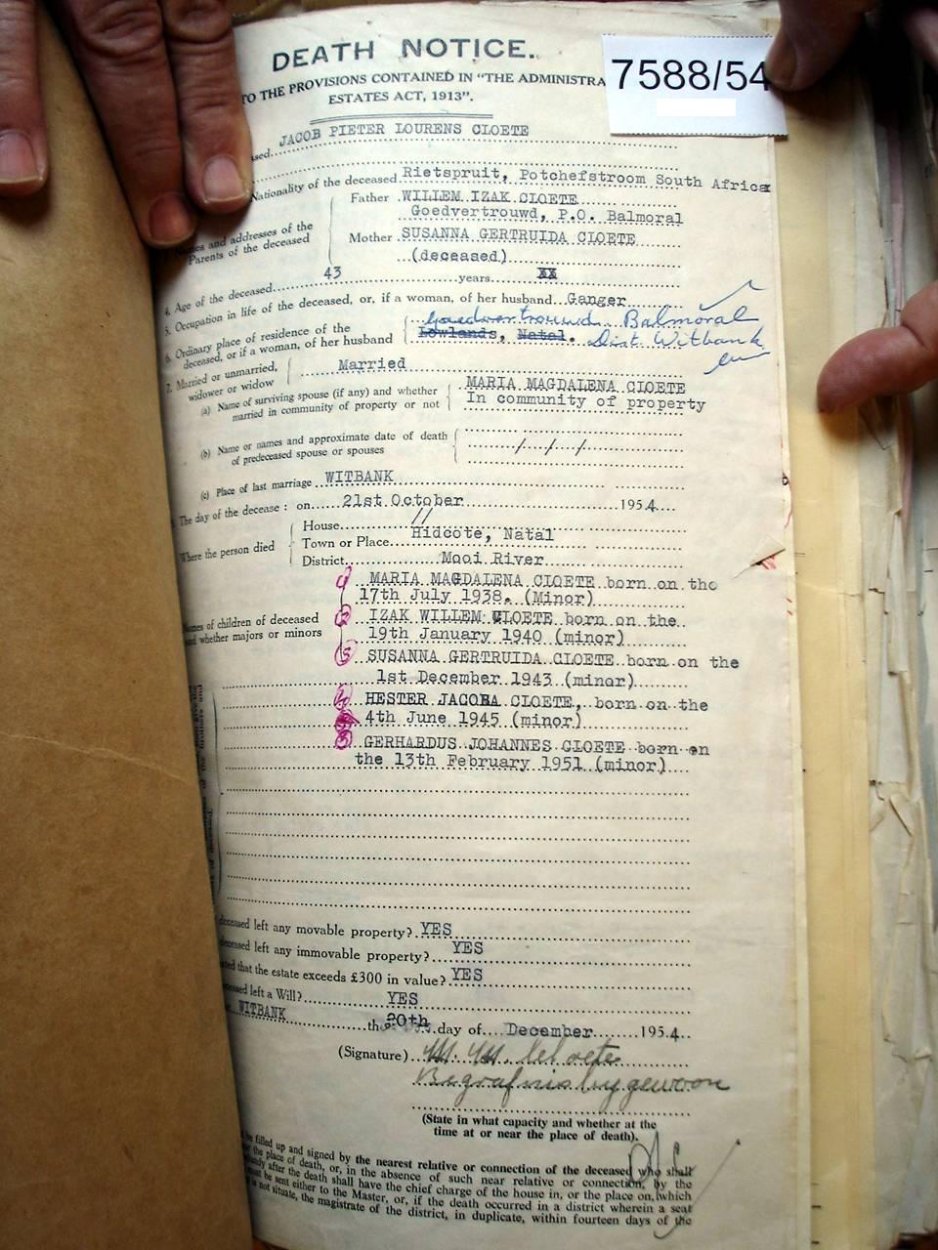 DEATH NOTICE.
7588/54
TO THE PROVISIONS CONTAINED IN "THE ADMINISTRA
ESTATES ACT, 1913".
sed. JACOB PIETER LOURENS CLOETE
Nationality of the deceased Rietspruit, Potchefstroom South Africa
Father WILLEM IZAK CLOETE
Goedvertrouwd, P.O. Balmoral
and addresses of the
Parents of the deceased
Mother SUSANNA GERTRUIDA CLOETE
(deceased)
4. Age of the deceased 43 years XX
5. Occupation in life of the deceased, or, if a woman, of her husband Ganger
Goedvertrouwd Balmoral
6. Ordinary place of residence of the
deceased, or if a woman, of her husband Lowlands, Natal. Dist. Witbank
7. Married or unmarried,
widower or widow Married
(a) Name of surviving spouse (if any) and whether
married in community of property or not MARIA MAGDALENA CLOETE
In community of property
(b) Name or names and approximate date of death
of predeceased spouse or spouses -/-/-/-/
(c) Place of last marriage WITBANK
The day of the decease : on 21st October 1954
Where the person died
House //
Town or Place Hidcote, Natal
District Mooi River
Names of children of deceased
and whether majors or minors
1 MARIA MAGDALENA CLOETE born on the
17th July 1938. (Minor)
2 IZAK WILLEM CLOETE born on the
19th January 1940 (minor)
3 SUSANNA GERTRUIDA CLOETE born on the
1st December 1943 (minor)
4 HESTER JACOBA CLOETE, born on the
4th June 1945 (minor)
5 GERHARDUS JOHANNES CLOETE born on
the 13th February 1951 (minor)
deceased left any movable property? YES
deceased left any immovable property? YES
ated that the estate exceeds £300 in value? YES
eased left a Will? YES
WITBANK the 20th day of December 1954
(Signature) M. M. Cloete
Begrafnis bygewoon
(State in what capacity and whether at the
time at or near the place of death).
be filled up and signed by the nearest relative or connection of the deceased who shall
the place of death, or, in the absence of such near relative or connection, by the
after the death shall have the chief charge of the house in, or the place on, which
must be sent either to the Master, or, if the death occurred in a district wherein a seat
is not situate, the magistrate of the district, in duplicate, within fourteen days of the